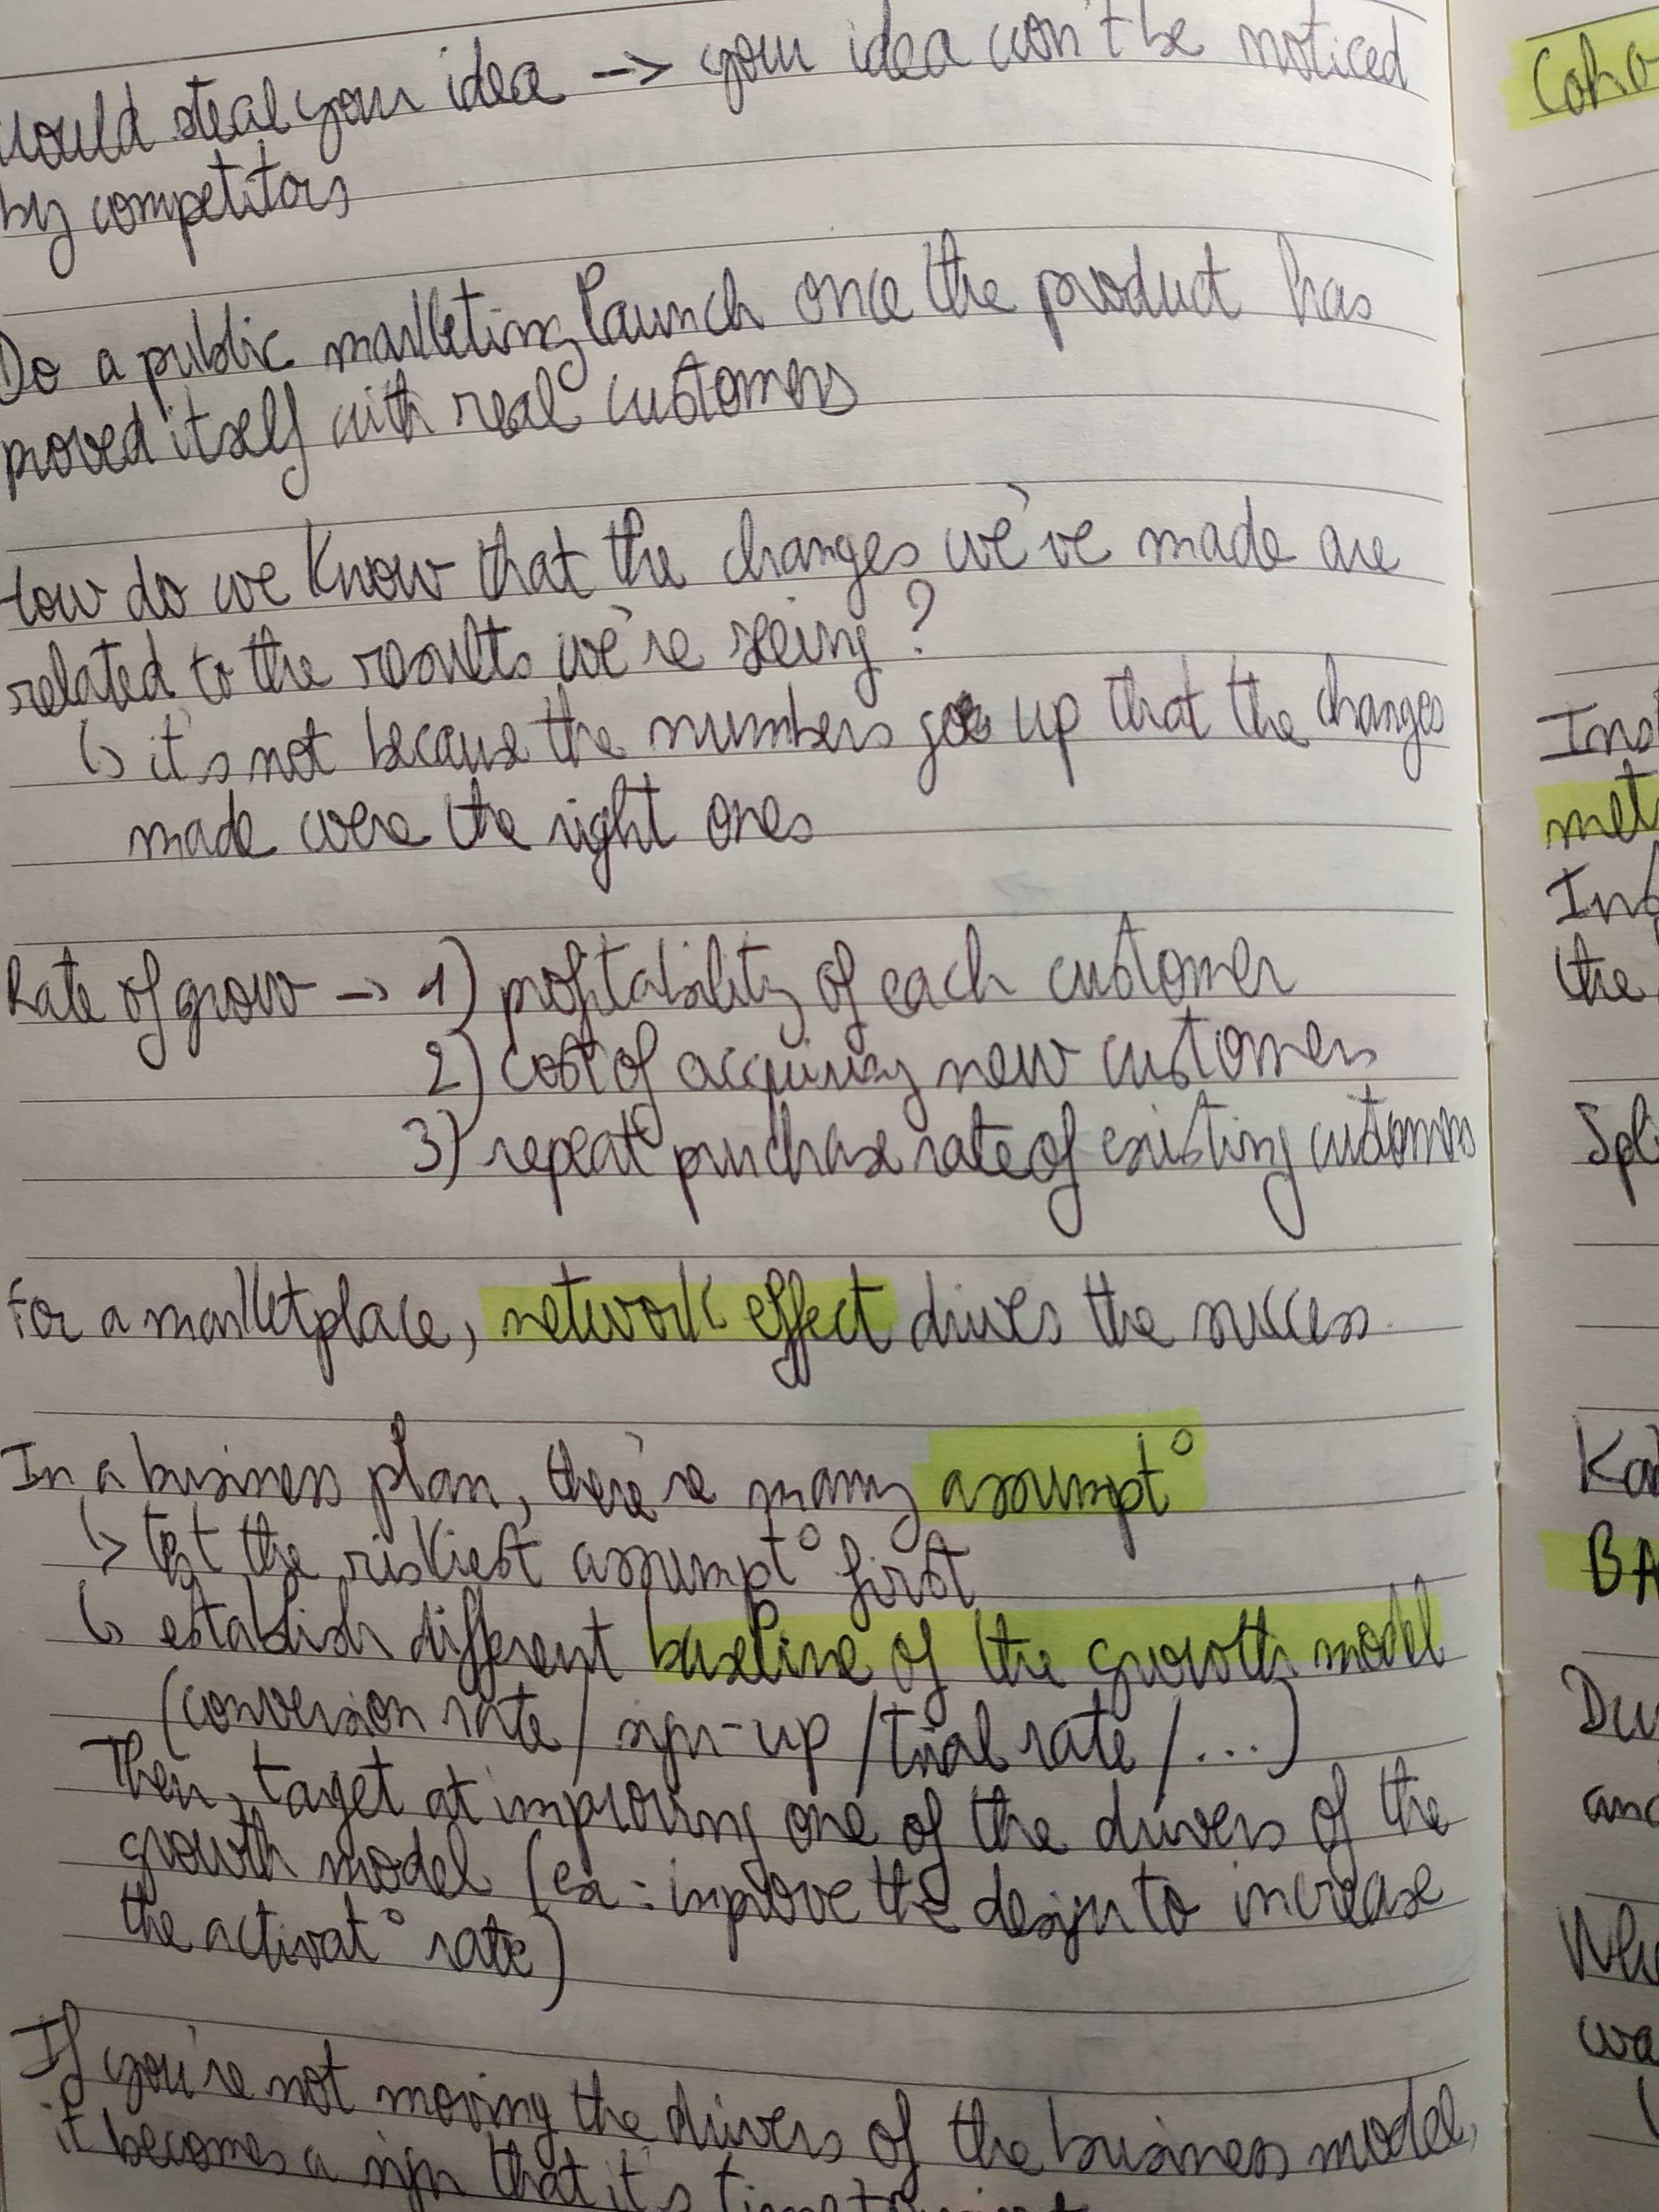 would steal your idea --> your idea won't be noticed
by competitors
Do a public marketing launch once the product has
proved itself with real customers
How do we know that the changes we've made are
related to the results we're seeing ?
↳ it's not because the numbers goes up that the changes
made were the right ones
Rate of grow -> 1) profitability of each customer
2) cost of acquiring new customers
3) repeat purchase rate of existing customers
For a marketplace, network effect drives the success.
In a business plan, there're many assumpt°
↳ test the riskiest assumpt° first
↳ establish different baseline of the growth model
(conversion rate / sign-up / trial rate / ...)
Then, target at improving one of the drivers of the
growth model (ex : improve the design to increase
the activat° rate)
If you're not moving the drivers of the business model,
it becomes a sign that it's time to
Coho
Inst
met
the
Spli
BA
and
wa